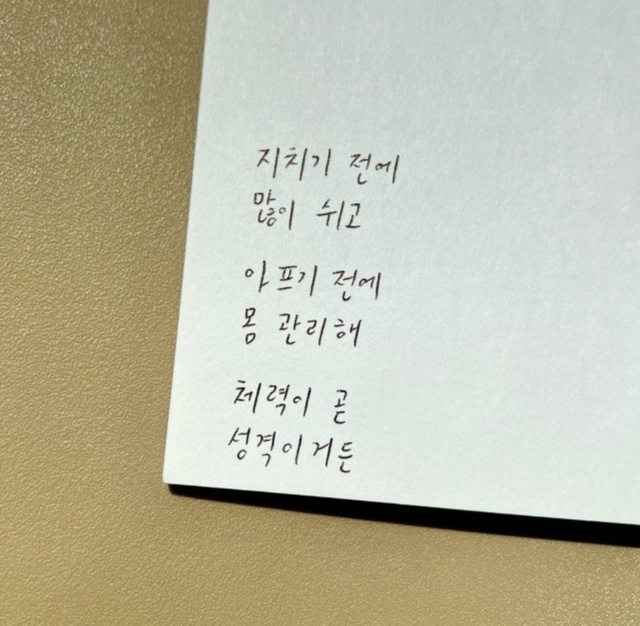 지치기 전에
많이 쉬고
아프기 전에
몸 관리해
체력이 곧
성격이거든